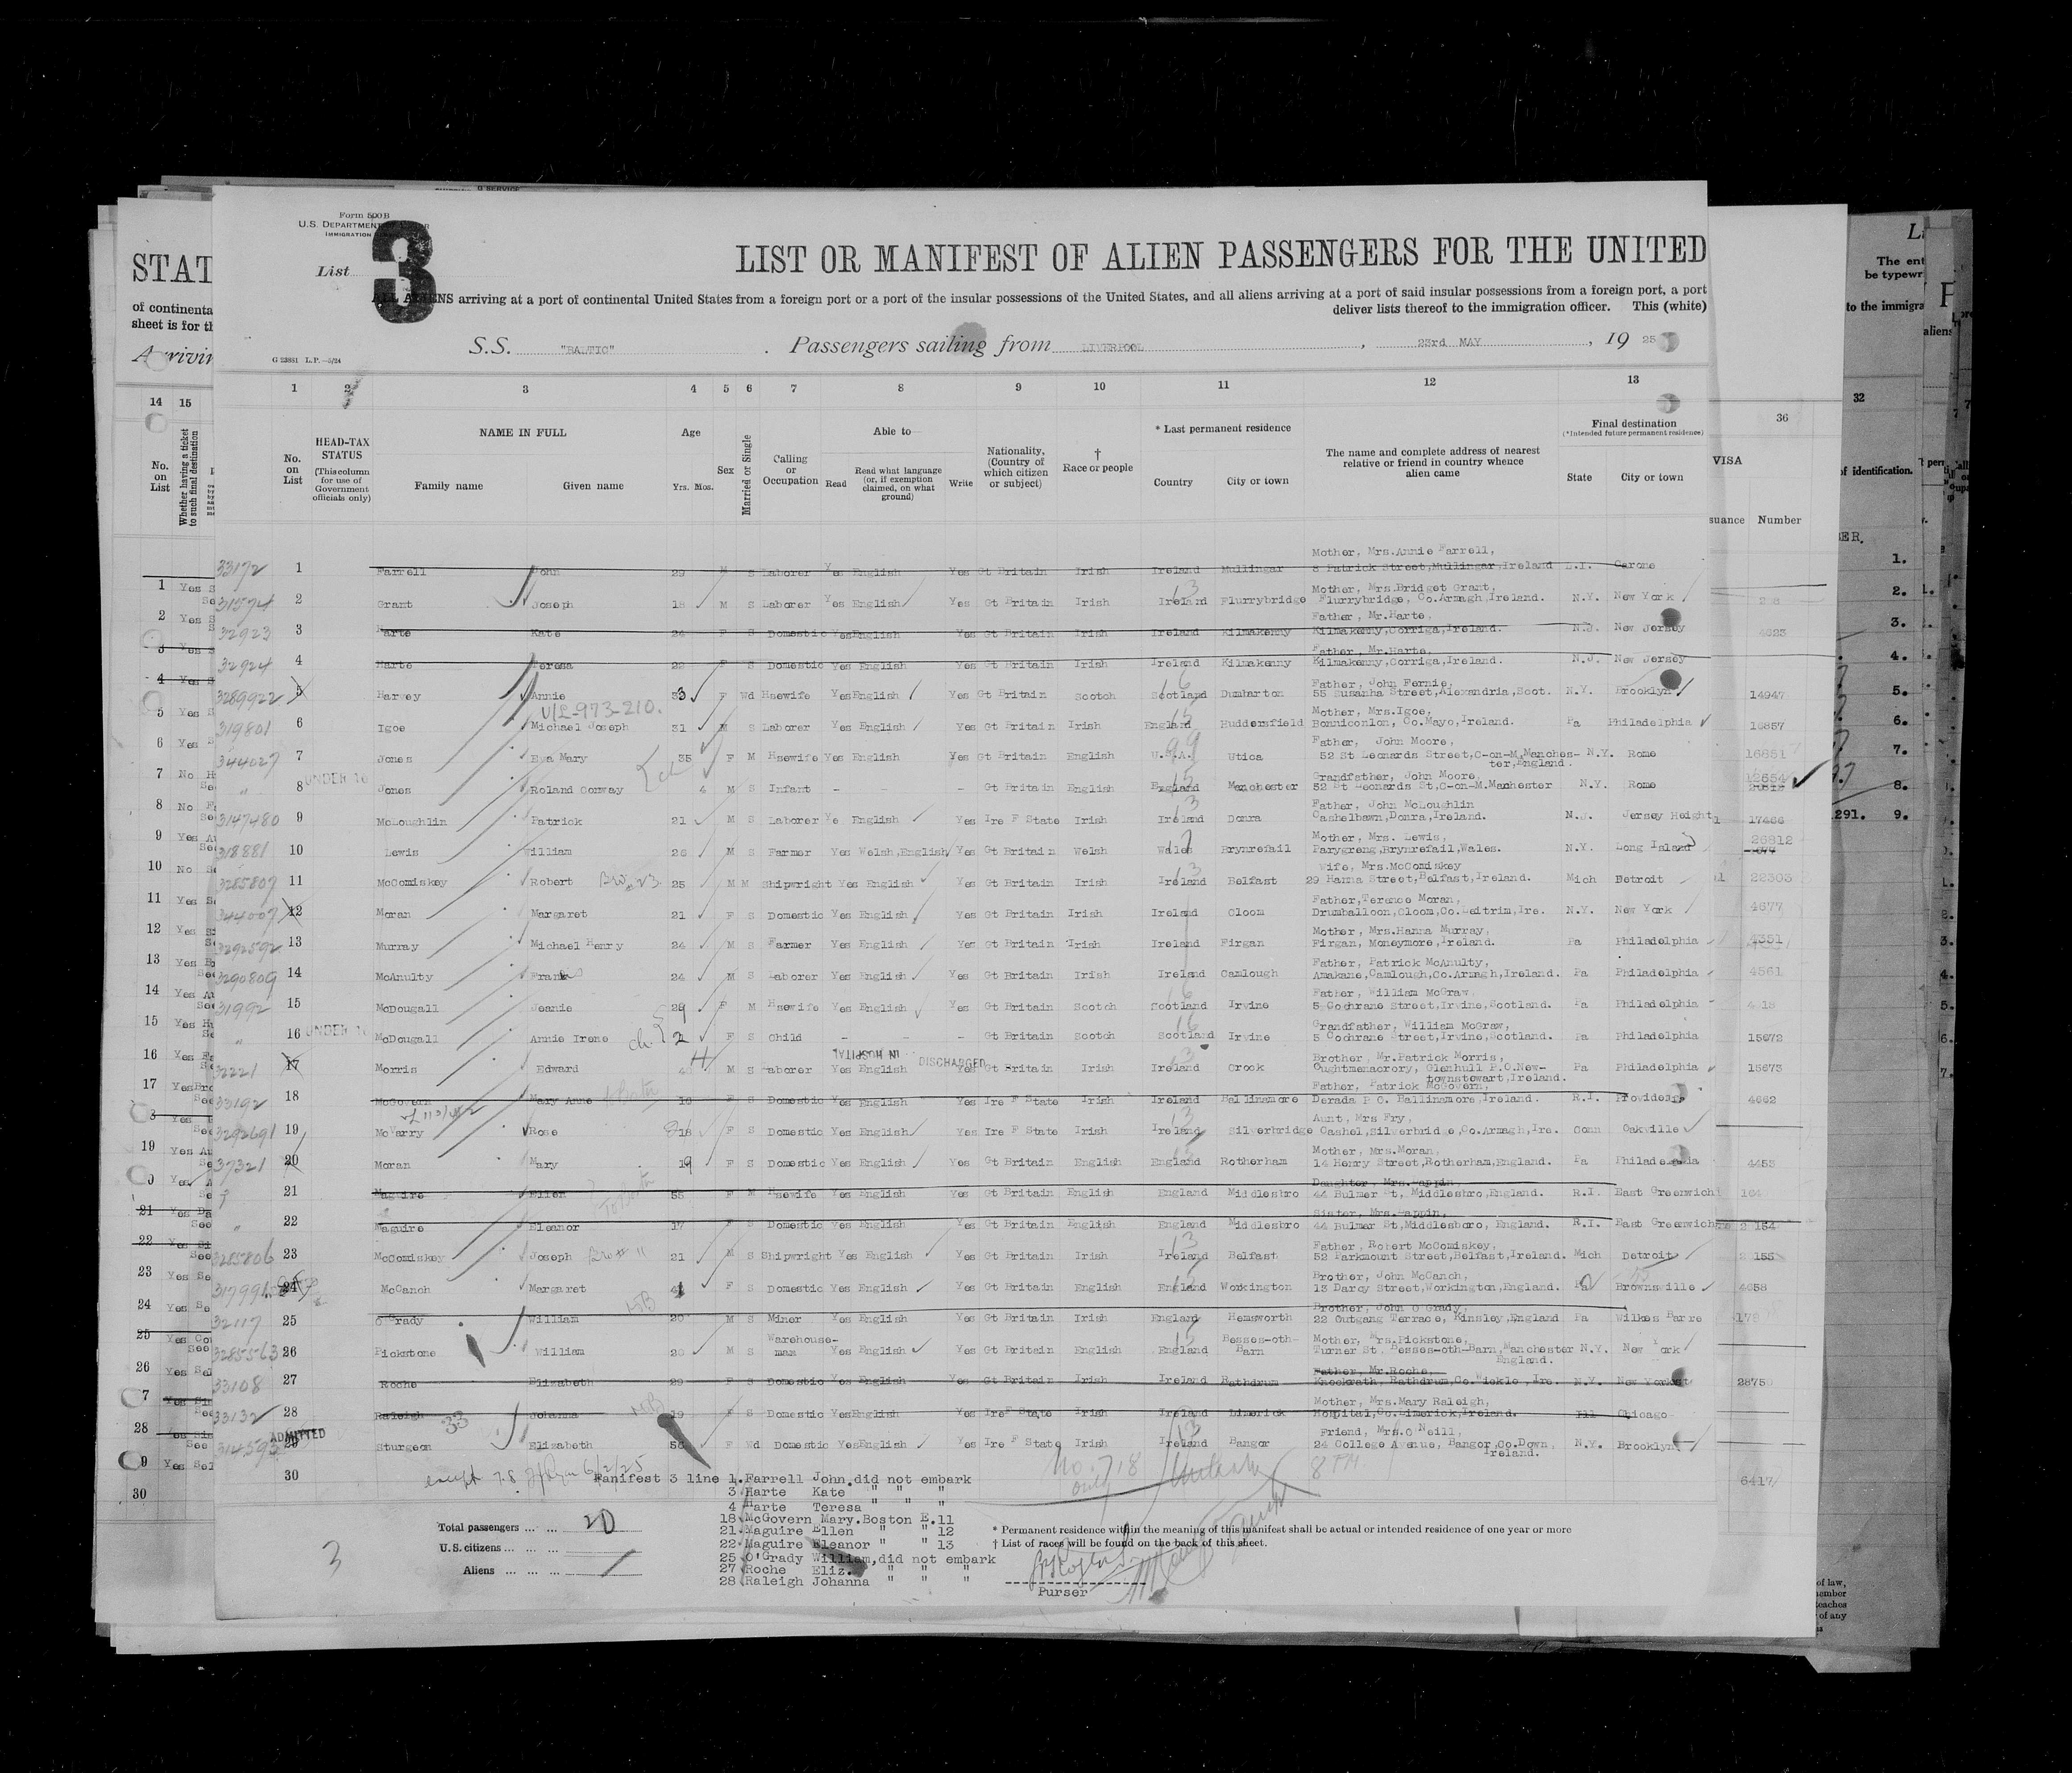 Form 500 B
U.S. DEPARTMENT
IMMIGRATION
List
3
LIST OR MANIFEST OF ALIEN PASSENGERS FOR THE UNITED
ALL ALIENS arriving at a port of continental United States from a foreign port or a port of the insular possessions of the United States, and all aliens arriving at a port of said insular possessions from a foreign port, a port
deliver lists thereof to the immigration officer. This (white)
S.S. "BALTIC" . Passengers sailing from LIVERPOOL , 23rd MAY , 19 25
G 23881 L. P.—5/24
1 2 3 4 5 6 7 8 9 10 11 12 13
No. on List
HEAD-TAX STATUS (This column for use of Government officials only)
NAME IN FULL
Family name Given name
Age
Yrs. Mos.
Sex
Married or Single
Calling or Occupation
Able to
Read Read what language (or, if exemption claimed, on what ground) Write
Nationality. (Country of which citizen or subject)
† Race or people
* Last permanent residence
Country City or town
The name and complete address of nearest relative or friend in country whence alien came
Final destination
(*Intended future permanent residence)
State City or town
33172 1 Farrell John 29 M S Laborer Yes English Yes Gt Britain Irish Ireland Mullingar Mother, Mrs.Annie Farrell, 8 Patrick Street,Mullingar,Ireland L.I. Carone
31574 2 Grant Joseph 18 M S Laborer Yes English Yes Gt Britain Irish Ireland Flurrybridge Mother, Mrs.Bridget Grant, Flurrybridge, Co.Armagh,Ireland. N.Y. New York
32923 3 Harte Kate 24 F S Domestic Yes English Yes Gt Britain Irish Ireland Kilmakenny Father, Mr.Harte, Kilmakenny,Corriga,Ireland. N.J. New Jersey 4623
32924 4 Harte Teresa 22 F S Domestic Yes English Yes Gt Britain Irish Ireland Kilmakenny Father, Mr.Harte, Kilmakenny,Corriga,Ireland. N.J. New Jersey
3289922 5 Harvey Annie 33 F Wd Hsewife Yes English Yes Gt Britain Scotch Scotland Dumbarton Father, John Fernie, 55 Susanha Street,Alexandria,Scot. N.Y. Brooklyn 14947
V/L-973-210.
319801 6 Igoe Michael Joseph 31 M S Laborer Yes English Yes Gt Britain Irish England Huddersfield Mother, Mrs.Igoe, Bonniconlon, Co.Mayo,Ireland. Pa Philadelphia 16857
344027 7 Jones Eva Mary 35 F M Hsewife Yes English Yes Gt Britain English U.S.A. Utica Father, John Moore, 52 St Leonards Street,C-on-M,Manches-ter,England. N.Y. Rome 16851
" UNDER 16 8 Jones Roland Conway 4 M S Infant - - - Gt Britain English England Manchester Grandfather, John Moore, 52 St Leonards St,C-on-M.Manchester N.Y. Rome
3147480 9 McLoughlin Patrick 21 M S Laborer Ye English Yes Ire F State Irish Ireland Donra Father, John McLoughlin Cashelbawn,Donra,Ireland. N.J. Jersey Height 17466
318881 10 Lewis William 26 M S Farmer Yes Welsh,English Yes Gt Britain Welsh Wales Brynrefail Mother, Mrs. Lewis, Parygreng,Brynrefail,Wales. N.Y. Long Island 26812
3285807 11 McComiskey Robert 25 M M Shipwright Yes English Yes Gt Britain Irish Ireland Belfast Wife, Mrs.McComiskey 29 Hanna Street,Belfast,Ireland. Mich Detroit 22303
344007 12 Moran Margaret 21 F S Domestic Yes English Yes Gt Britain Irish Ireland Cloom Father,Terence Moran, Drumballoon,Cloom,Co.Leitrim,Ire. N.Y. New York 4677
3292592 13 Murray Michael Henry 24 M S Farmer Yes English Yes Gt Britain Irish Ireland Firgan Mother, Mrs.Hanna Murray, Firgan, Moneymore,Ireland. Pa Philadelphia 4351
3290809 14 McAnulty Frank 24 M S Laborer Yes English Yes Gt Britain Irish Ireland Camlough Father, Patrick McAnulty, Amakane,Camlough,Co.Armagh,Ireland. Pa Philadelphia 4561
31992 15 McDougall Jeanie 29 F M Hsewife Yes English Yes Gt Britain Scotch Scotland Irvine Father, William McGraw, 5 Cochrane Street,Irvine,Scotland. Pa Philadelphia
" UNDER 16 16 McDougall Annie Irene ch. 2 F S Child - - - Gt Britain Scotch Scotland Irvine Grandfather, William McGraw, 5 Cochrane Street,Irvine,Scotland. Pa Philadelphia 15672
IN HOSPITAL DISCHARGED
32221 17 Morris Edward 40 M S Laborer Yes English Yes Gt Britain Irish Ireland Crook Brother, Mr.Patrick Morris, Oughtmenacrory, Glenhull P.O.New-townstowart,Ireland. Pa Philadelphia 15673
33192 18 McGovern Mary Anne 19 F S Domestic Yes English Yes Ire F State Irish Ireland Ballinamore Father, Patrick McGovern, Derada P O. Ballinamore,Ireland. R.I. Providence 4662
3292691 19 McVarry Rose 18 F S Domestic Yes English Yes Ire F State Irish Ireland Silverbridge Aunt, Mrs Fry, Cashel,Silverbridge,Co.Armagh,Ire. Conn Oakville
37321 20 Moran Mary 19 F S Domestic Yes English Yes Gt Britain English England Rotherham Mother, Mrs.Moran, 14 Henry Street,Rotherham,England. Pa Philadelphia 4453
21 Maguire Ellen 55 F M Hsewife Yes English Yes Gt Britain English England Middlesbro Daughter, Mrs.Wappin, 44 Bulmer St, Middlesbro,England. R.I. East Greenwich
" 22 Maguire Eleanor 17 F S Domestic Yes English Yes Gt Britain English England Middlesbro Sister, Mrs.Wappin, 44 Bulmar St,Middlesboro, England. R.I. East Greenwich 154
3285806 23 McComiskey Joseph 21 M S Shipwright Yes English Yes Gt Britain Irish Ireland Belfast Father, Robert McComiskey, 52 Parkmount Street,Belfast,Ireland. Mich Detroit 155
317991 24 McCanch Margaret 41 F S Domestic Yes English Yes Gt Britain English England Workington Brother, John McCanch, 13 Darcy Street,Workington,England. Pa Brownsville 4058
32117 25 O'Grady William 20 M S Miner Yes English Yes Gt Britain Irish England Hemsworth Brother, John O'Grady, 22 Outgang Terrace, Kinsley,England Pa Wilkes Barre 178
3285563 26 Pickstone William 20 M S Warehouse-man Yes English Yes Gt Britain English England Besses-oth-Barn Mother, Mrs.Pickstone, Turner St, Besses-oth-Barn,Manchester England. N.Y. New York
33108 27 Roche Elizabeth 29 F S Domestic Yes English Yes Gt Britain Irish Ireland Rathdrum Father, Mr.Roche, Knockrath, Rathdrum,Co.Wicklo, Ire. N.Y. New York 2875
33132 28 Raleigh Johanna 19 F S Domestic Yes English Yes Ire F State Irish Ireland Limerick Mother, Mrs.Mary Raleigh, Hospital,Co.Limerick,Ireland. Ill Chicago
ADMITTED
314593 29 Sturgeon Elizabeth 56 F Wd Domestic Yes English Yes Ire F State Irish Ireland Bangor Friend, Mrs.O'Neill, 24 College Avenue, Bangor,Co.Down, Ireland. N.Y. Brooklyn
30 except 7.8 6/2/25 6417
Manifest 3 line 1.Farrell John.did not embark
3 Harte Kate " " "
4 Harte Teresa " " "
18 McGovern Mary.Boston E.11
21 Maguire Ellen " " 12
22 Maguire Eleanor " " 13
25 O'Grady William,did not embark
27 Roche Eliz. " " "
28 Raleigh Johanna " " "
Total passengers ... ... 20
U.S. citizens ... ... ...
Aliens ... ... ...
3
* Permanent residence within the meaning of this manifest shall be actual or intended residence of one year or more
† List of races will be found on the back of this sheet.
Purser
STAT
of continenta
sheet is for th
Arrivin
14 15
No. on List
Whether having a ticket to such final destination
36
VISA
suance Number
32
of identification.
The ent
be typewr
to the immigra
aliens